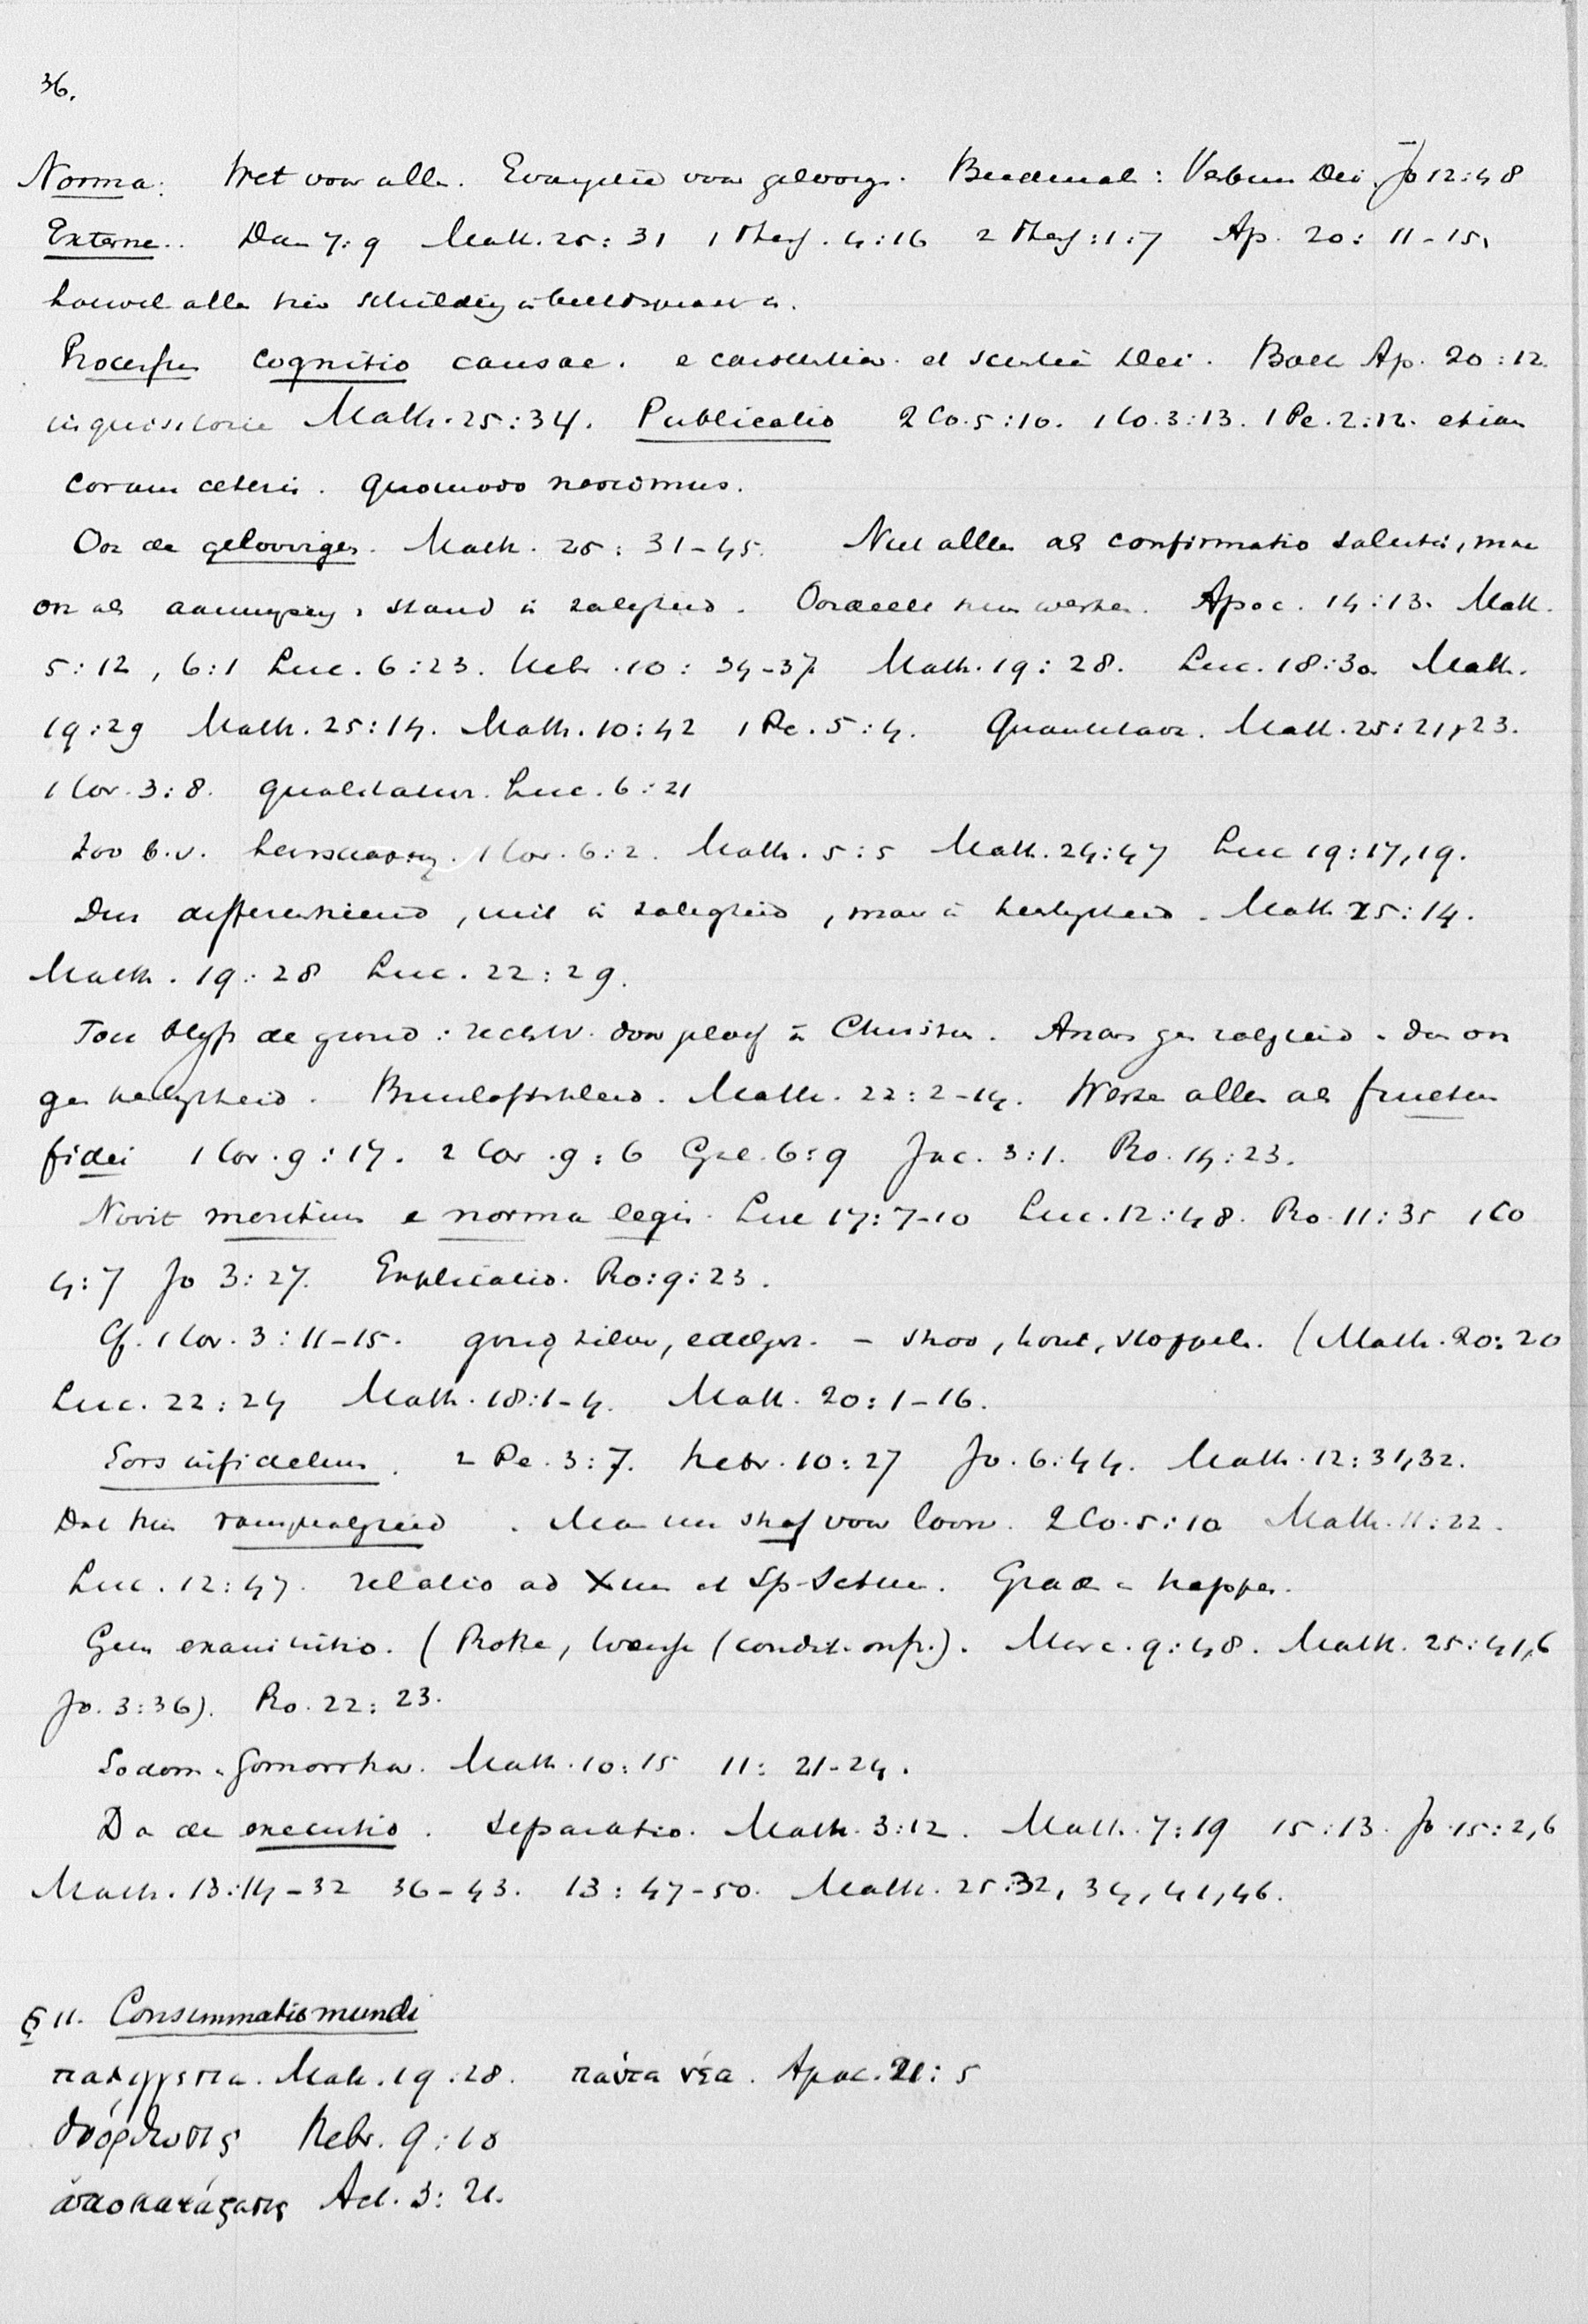 36.
Norma: Wet voor allen. Evangelie voor geloovigen. Beidemaal: Verbum Dei. Jo 12:48
Externe.. Dan 7:9 Math. 25:31 1 Thess. 4:16 2 Thess:1:7 Ap. 20:11-15,
hoewel alle hier schildering in beeldspraak is.
Processus cognitio causae. e conscientia et scientia Dei. Boek Ap. 20:12.
inquisitorie Math. 25:34. Publicatio 2 Co. 5:10. 1 Co. 3:13. 1 Pe. 2:12. etiam
coram ceteris. Quomodo nescimus.
Ook de geloovigen. Math. 25:31-45. Niet alleen als confirmatio salutis, maar
ook als aanwijzing v stand in zaligheid. Oordeelt hun werken. Apoc. 14:13. Math.
5:12, 6:1 Luc. 6:23. Hebr. 10:34-37 Math. 19:28. Luc. 18:30 Math.
19:29 Math. 25:14. Math. 10:42 1 Pe. 5:4. Quantitatie. Math. 25:21,23.
1 Cor. 3:8. qualitatie. Luc. 6:21
Zoo b.v. heerschappij. 1 Cor. 6:2. Math. 5:5 Math. 24:47 Luc 19:17,19.
Dus differentieerend, niet in zaligheid, maar in heerlijkheid. Math 25:14.
Math. 19:28 Luc. 22:29.
Toch blijft de grond: rechtv. door geloof in Christus. Anders geen zaligheid. dus ook
geen heerlijkheid. Bruiloftskleed. Math. 22:2-14. Werken alleen als fructus
fidei 1 Cor. 9:17. 2 Cor. 9:6 Gal. 6:9 Jac. 3:1. Ro. 14:23.
meritum e norma legis. Luc 17:7-10 Luc. 12:48. Ro. 11:35 1 Co
4:7 Jo 3:27. Explicatio. Ro:9:23.
Cf. 1 Cor. 3:11-15. goud, zilver, edelgest. - stroo, hout, stoppels. (Math. 20:20
Luc. 22:24 Math. 18:1-4. Math. 20:1-16.
Sors infidelium. 2 Pe. 3:7. Hebr. 10:27 Jo. 6:44. Math. 12:31,32.
Dat hun rampzaligheid. Maar nu straf voor loon. 2 Co. 5:10 Math. 11:22.
Luc. 12:47. relatio ad Xum et Sp-Sctum. Graden en trappen.
Geen exaninitio. (Rothe, Weisse (condit. onst.). Marc. 9:48. Math. 25:41,6
Jo. 3:36). Ro. 22:23.
Sodom en Gomorrha. Math. 10:15 11:21-24.
Dan de executio. Separatio. Math. 3:12. Math. 7:19 15:13. Jo. 15:2,6
Math. 13:14-32 36-43. 13:47-50. Math. 25:32, 34, 41, 46.
§ 11. Consummatio mundi
παλιγγενεσια. Math. 19:28. πάντα νέα. Apoc. 21:5
διόρθωσις Hebr. 9:10
ἀποκατάστασις Act. 3:21.